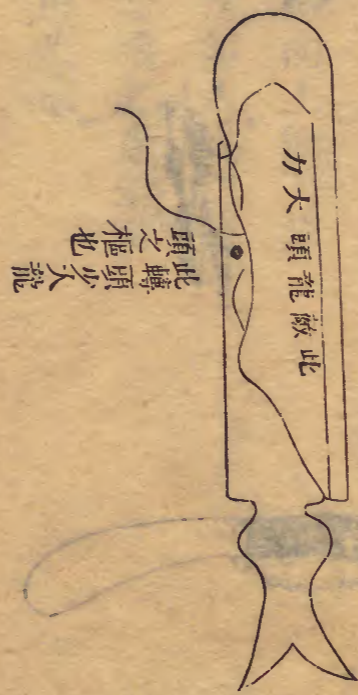 此敵龍頭大力
此轉頭少人龍
頭之樞也